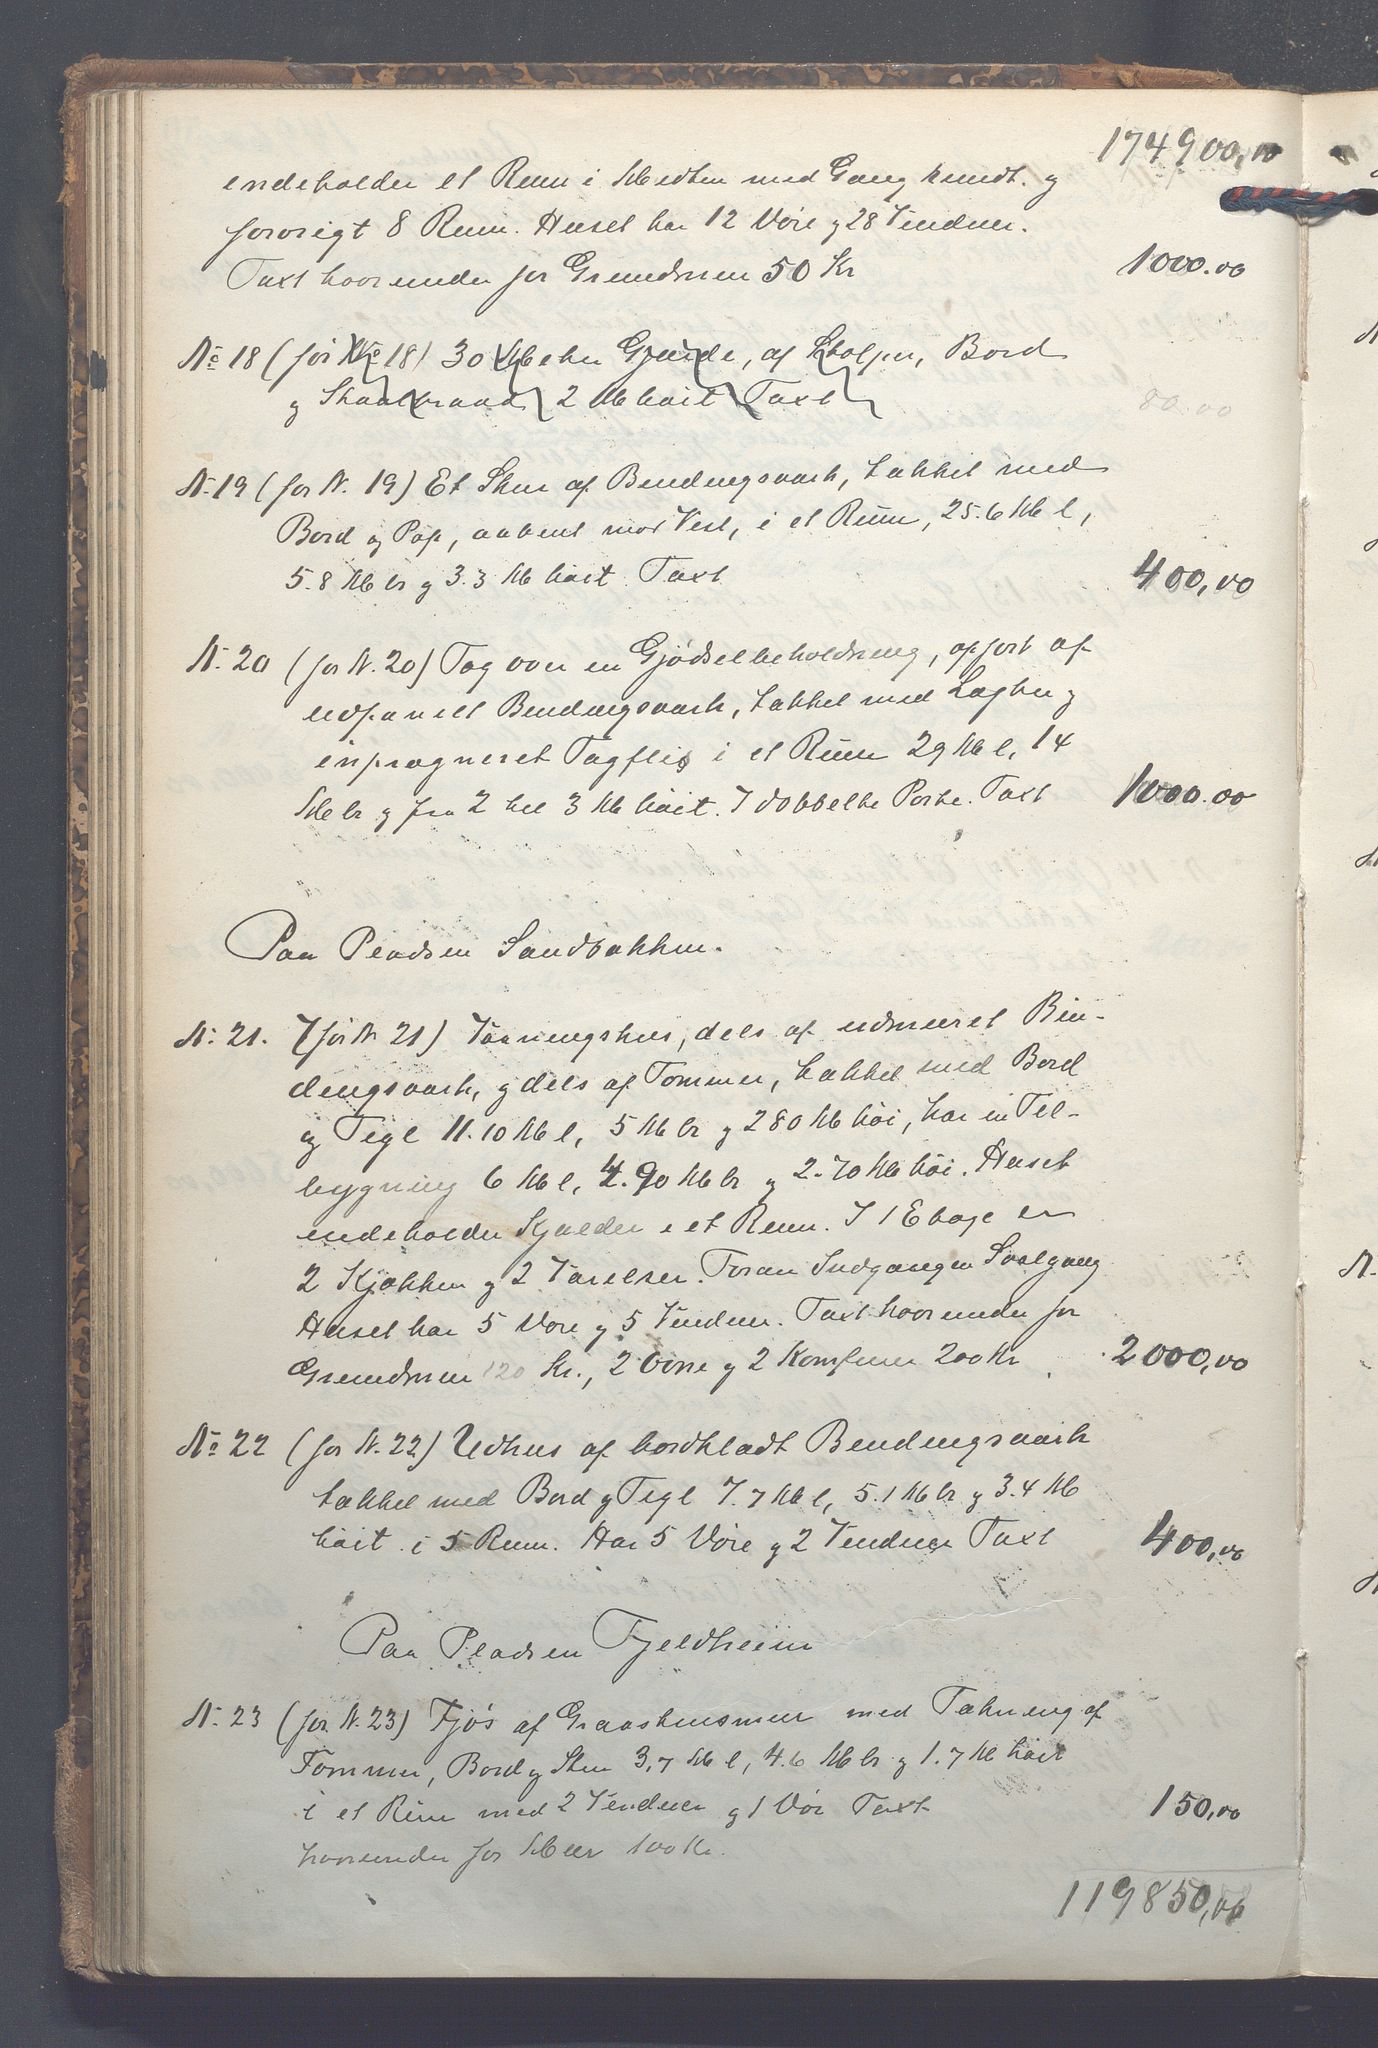 174900,00
indeholder et Rum i Midten med Gang rundt. og
forøvrigt 8 Rum. Huset har 12 Döre og 28 Vinduer.
Taxt hvorunder for Grundmur 50 Kr 1000.00
No 18 (för No 18) 30 Meter Gjerde, af Stolper, Bord
og Skraabaand 2 M höit Taxt 80.00
N. 19 (för N. 19) Et Skur af Bindingsværk, tækket med
Bord og Pap, aabent mod Vest, i et Rum, 25.6 M l,
5.8 M br og 3.3 M höit Taxt 400,00
N. 20 (för N. 20) Tag over en Gjödselbeholdning, opfört af
udpanelt Bindingsværk, tækket med Lægter og
inprægneret Tagflis i et Rum 29 M l, 14
M br og fra 2 til 3 M höit. 7 dobbelte Porte. Taxt 1000.00
Paa Pladsen Sandbakken.
N. 21. (för N 21) Vaaningshus, dels af udmuret Bin-
dingsværk, og dels af Tømmer, tækket med Bord
og Tegl 11.10 M l, 5 M br og 2 80 M höi, har en Til-
bygning 6 M l, 4.90 M br og 2.70 M höi. Huset
indeholder Kjælder i et Rum. I 1 Etage er
2 Kjøkken og 2 Værelser. Foran Indgangen Svalgang
Huset har 5 Döre og 5 Vinduer. Taxt hvorunder for
Grundmur 120 Kr., 2 Ovne og 2 Komfurer 200 Kr 2000,00
No 22 (för N. 22) Udhus af bordklædt Bindingsværk
tækket med Bord og Tegl 7.7 M l, 5.1 M br og 3.4 M
höit i 5 Rum. Har 5 Döre og 2 Vinduer Taxt 400,00
Paa Pladsen Fjeldheim
N. 23 (för N. 23) Fjös af Graastensmur med Takning af
Tømmer, Bord og Sten 3,7 M l, 4.6 M br og 1.7 M höit
i et Rum med 2 Vinduer og 1 Dör Taxt 150,00
hvorunder for Mur 100 Kr.
119850,00